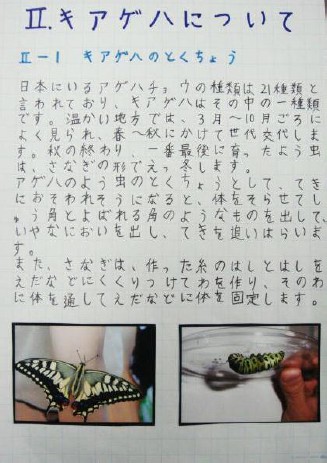 Ⅱ.キアゲハについて
Ⅱ-1 キアゲハのとくちょう
日本にいるアゲハチョウの種類は21種類と
言われており、キアゲハはその中の一種類
です。温かい地方では、3月〜10月ごろに
よく見られ、春〜秋にかけて世代交代しま
す。秋の終わり、一番最後に育ったよう虫
は、さなぎの形でえっ冬します。
アゲハのよう虫のとくちょうとして、てき
におそわれそうになると、体をそらせてし
ゅう角とよばれる角のようなものを出して、
いやなにおいを出し、てきを追いはらいま
す。
また、さなぎは、作った糸のはしとはしを
えだなどにくくりつけてわを作り、そのわ
に体を通してえだなどに体を固定します。